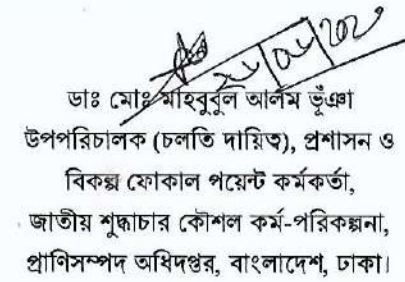 ডাঃ মোঃ মাহবুবুল আলম ভূঁঞা
উপপরিচালক (চলতি দায়িত্ব), প্রশাসন ও
বিকল্প ফোকাল পয়েন্ট কর্মকর্তা,
জাতীয় শুদ্ধাচার কৌশল কর্ম-পরিকল্পনা,
প্রাণিসম্পদ অধিদপ্তর, বাংলাদেশ, ঢাকা।